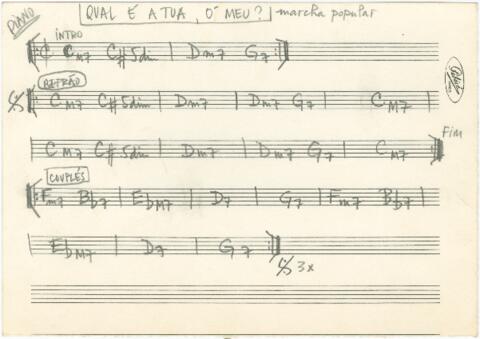 PIANO QUAL É A TUA, Ó MEU? marcha popular
INTRO
₵ CM7 C#5dim | Dm7 G7
REFRÃO
CM7 C#5dim | Dm7 | Dm7 G7 | CM7
CM7 C#5dim | Dm7 | Dm7 G7 | CM7 FIM
COUPLÉS
Fm7 Bb7 | EbM7 | D7 | G7 | Fm7 Bb7
EbM7 | D7 | G7
3x